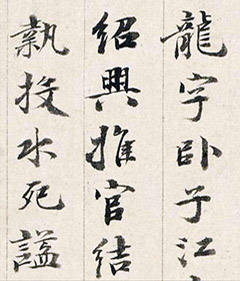 龍字卧子江
紹興推官結
執投水死謚